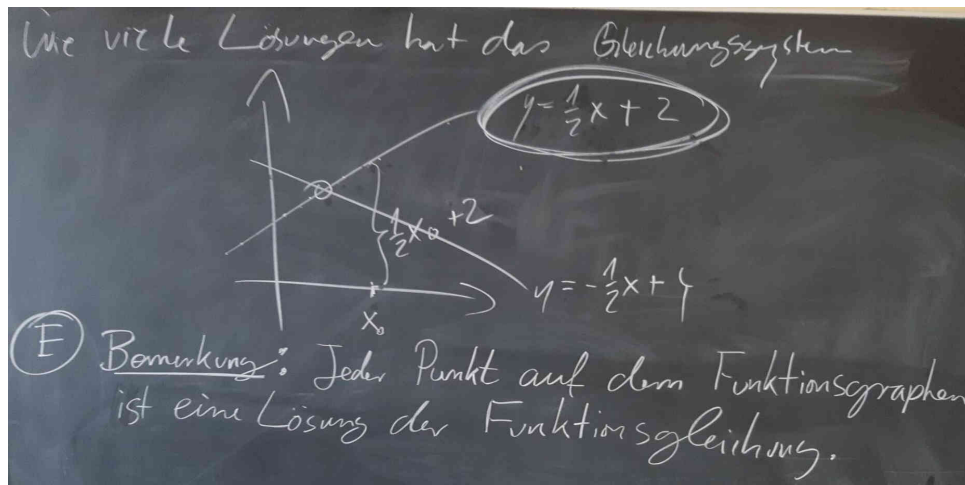 Wie viele Lösungen hat das Gleichungssystem
y = 1/2 x + 2
1/2 x₀ + 2
y = -1/2 x + 4
x₀
E Bemerkung: Jeder Punkt auf dem Funktionsgraphen
ist eine Lösung der Funktionsgleichung.